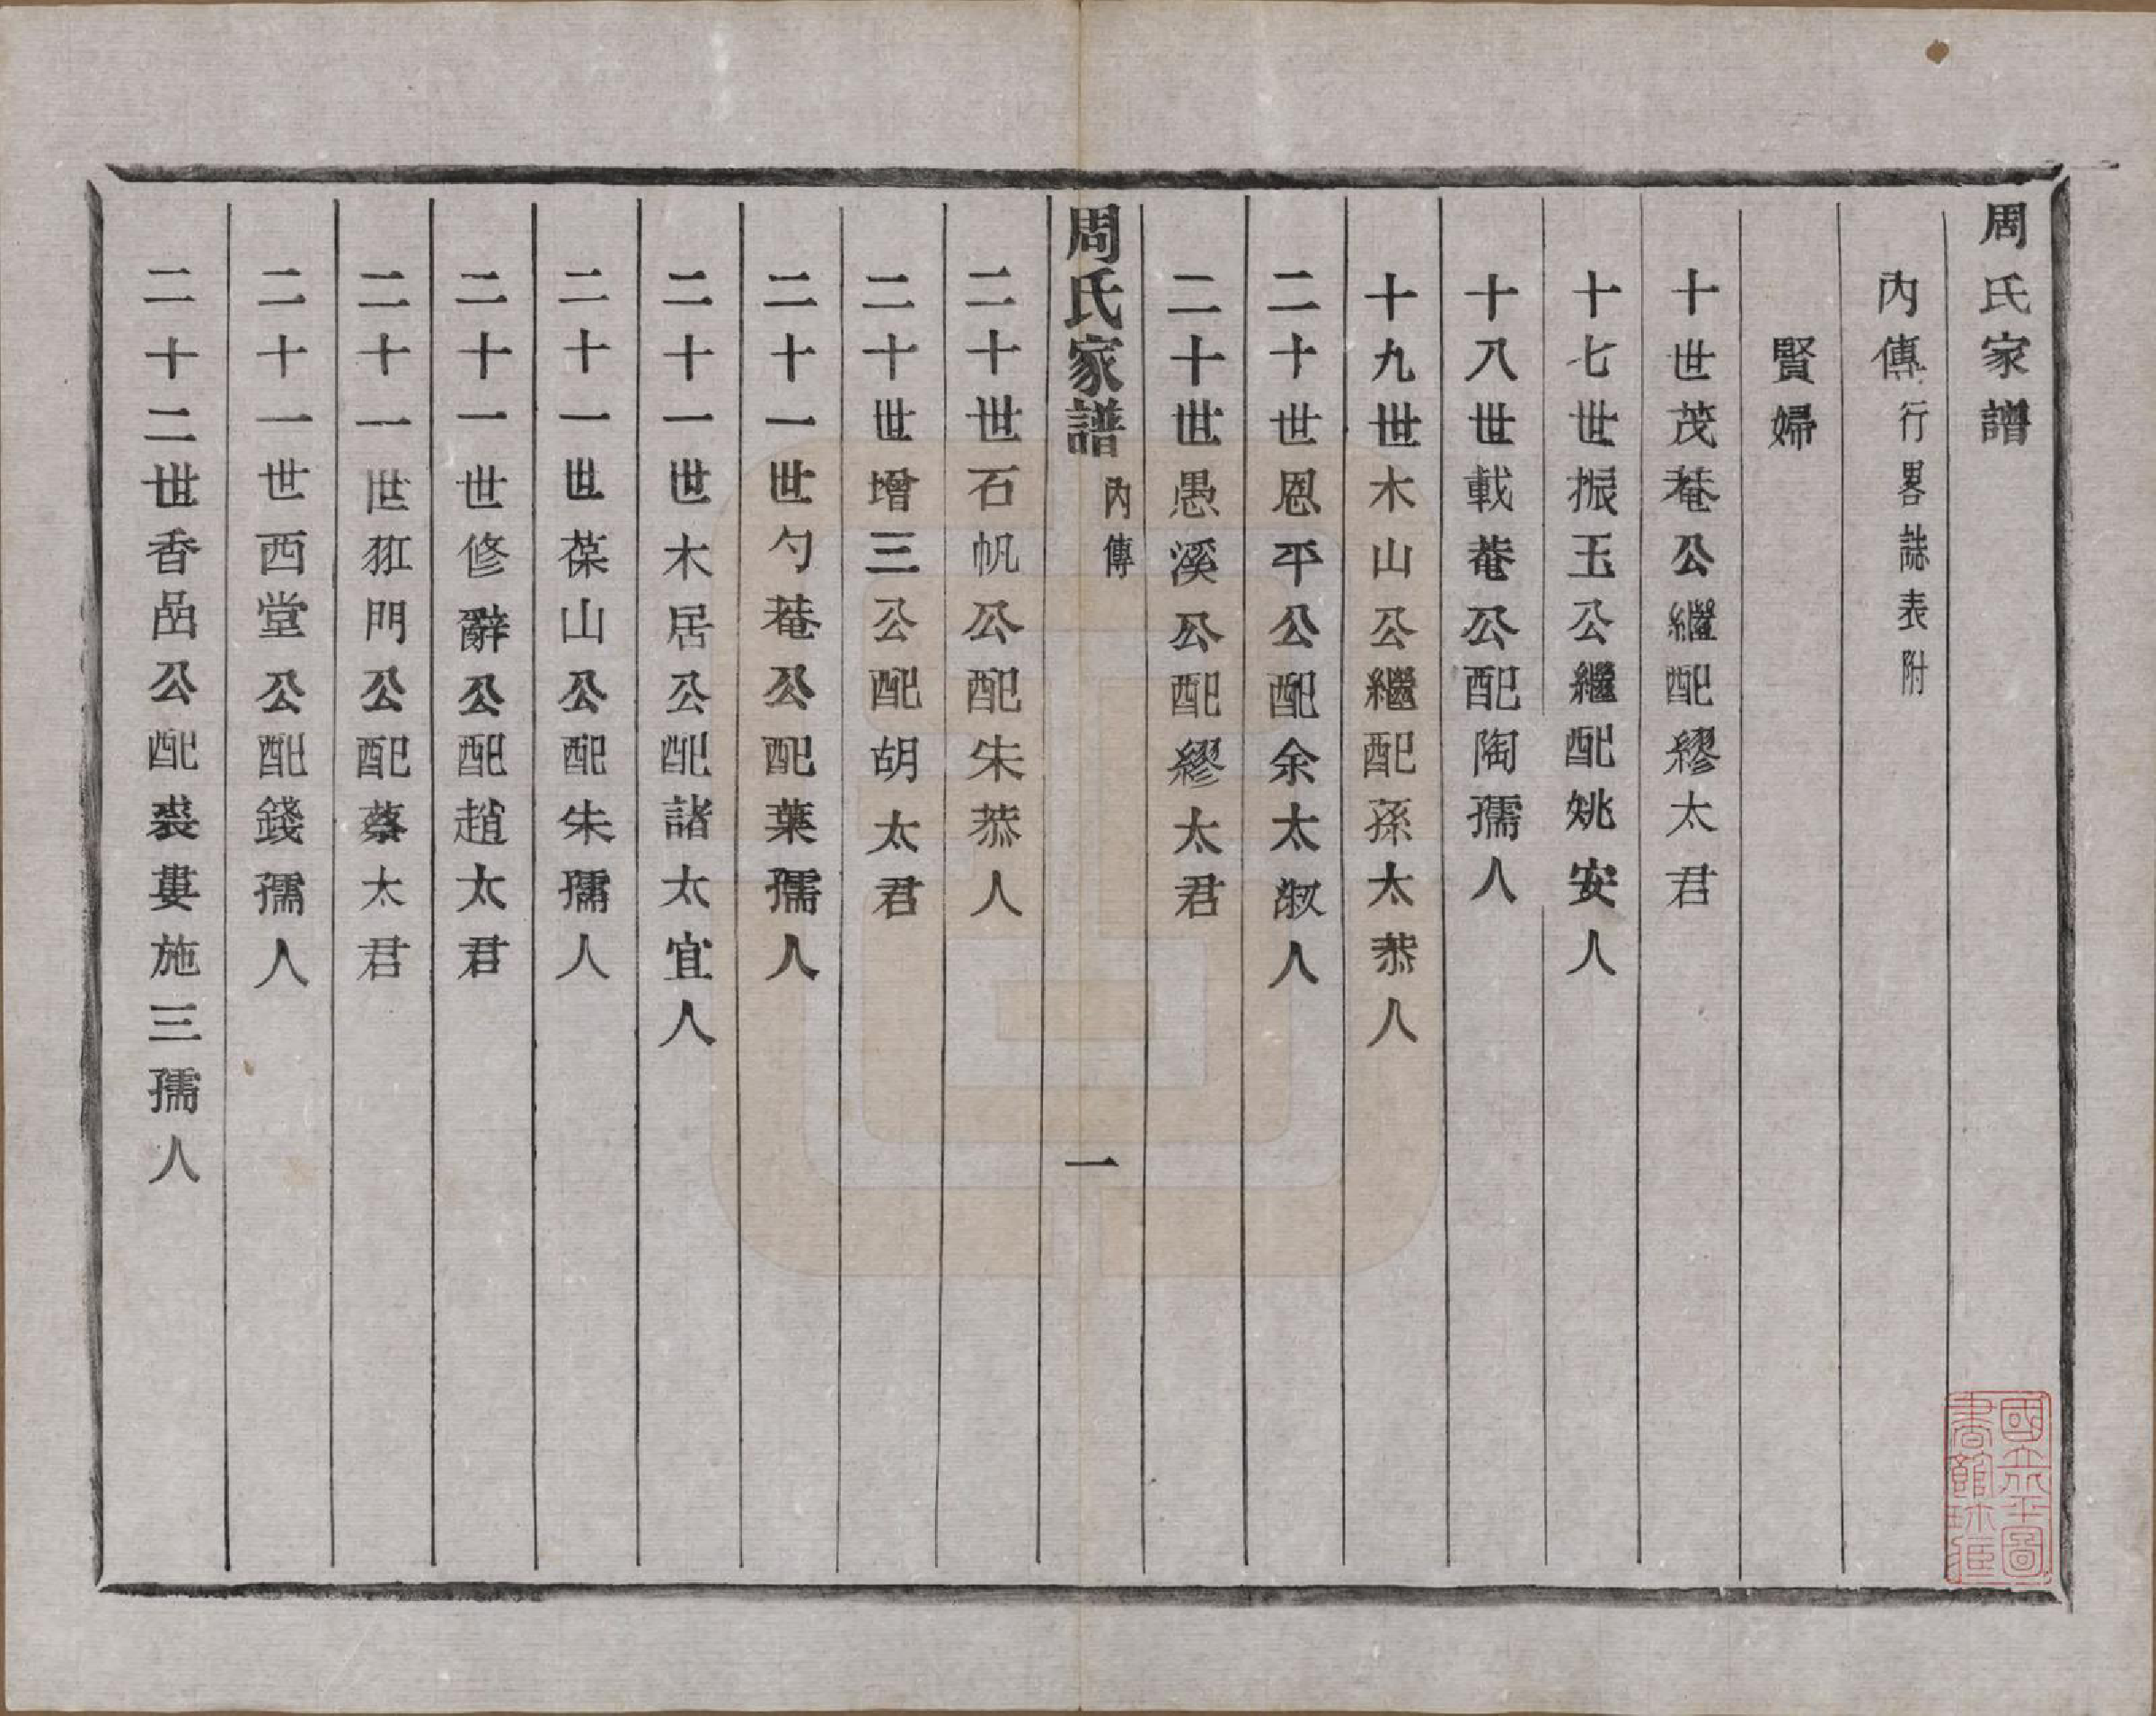 周氏家譜
內傳行畧誌表附
賢婦
十世茂菴公繼配繆太君
十七世振玉公繼配姚安人
十八世載菴公配陶孺人
十九世木山公繼配孫太恭人
二十世恩平公配余太淑人
二十世愚溪公配繆太君
周氏家譜 內傳 一
二十世石帆公配朱恭人
二十世增三公配胡太君
二十一世勺菴公配葉孺人
二十一世木居公配諸太宜人
二十一世葆山公配朱孺人
二十一世修辭公配趙太君
二十一世㺬門公配蔡太君
二十一世西堂公配錢孺人
二十二世香嵒公配裘婁施三孺人
國立北平圖書館珍藏